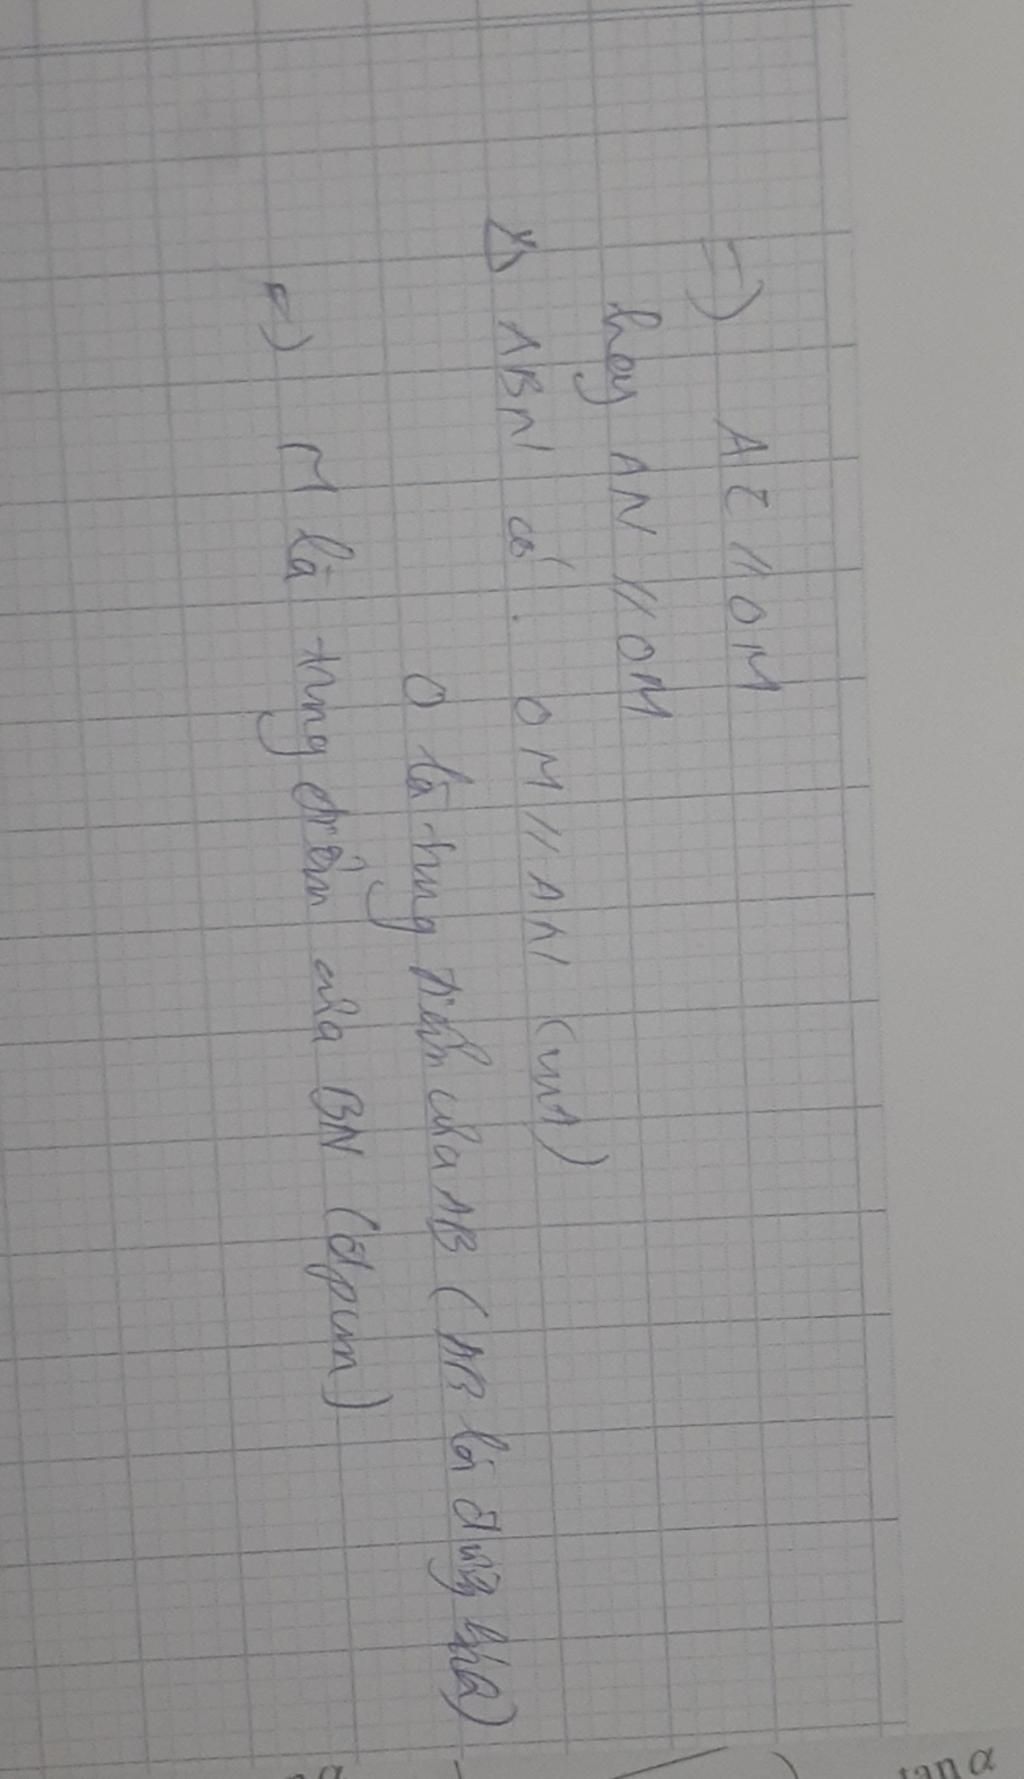 =) AE // OM
hay AN // OM
Δ ABN có : OM // AN (cmt)
O là trung điểm của AB (AB là đường kính)
=) M là trung điểm của BN (đpcm)
tan α